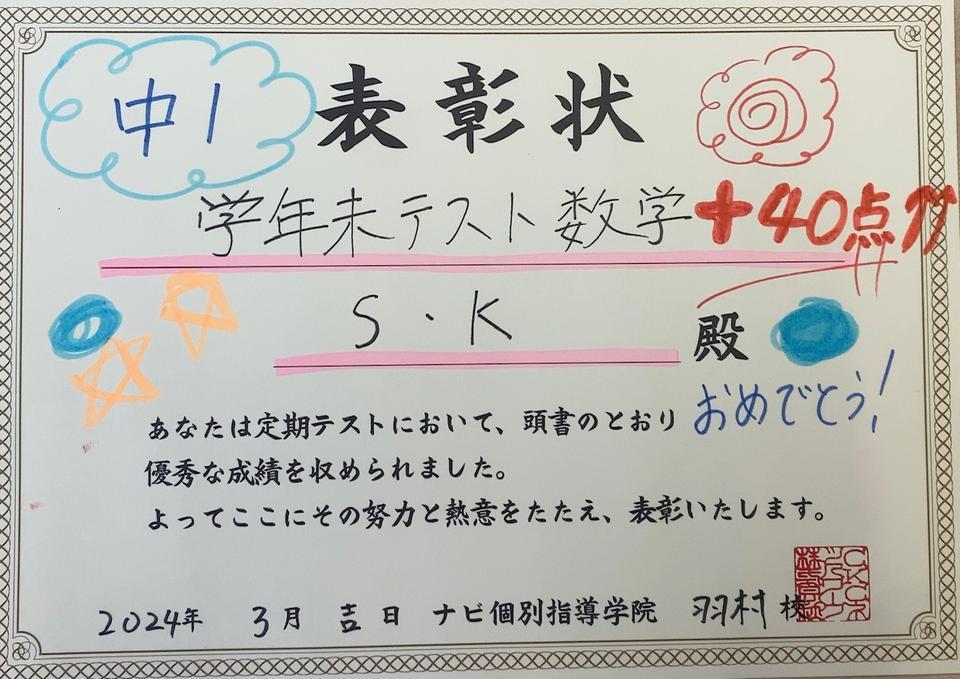 中1
表彰状
学年末テスト数学 +40点
S・K 殿
おめでとう!
あなたは定期テストにおいて、頭書のとおり
優秀な成績を収められました。
よってここにその努力と熱意をたたえ、表彰いたします。
2024年 3月 吉日 ナビ個別指導学院 羽村 校